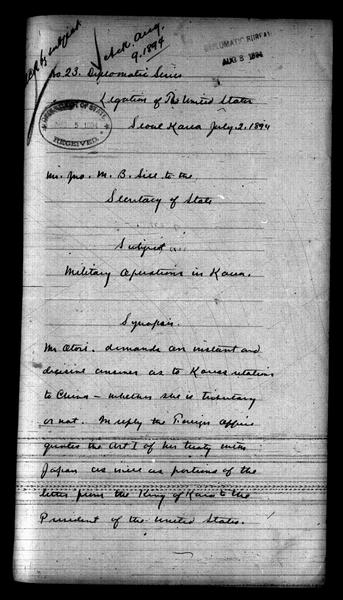 Ack. Aug.
9. 1894
DIPLOMATIC BUREAU
AUG 8 1894
No. 23. Diplomatic Series
Legation of The United States
DEPARTMENT OF STATE
5 1894
RECEIVED
Seoul Korea July 2. 1894
Mr. Jno. M. B. Sill to the
Secretary of State
Subject
Military Operations in Korea.
Synopsis.
Mr Otori. demands an instant and
decisive answer as to Koreas relations
to China – whether she is tributary
or not. In reply the Foreign Office
quotes the Art I of his treaty with
Japan as well as portions of the
letter from the King of Korea to the
President of the United States.